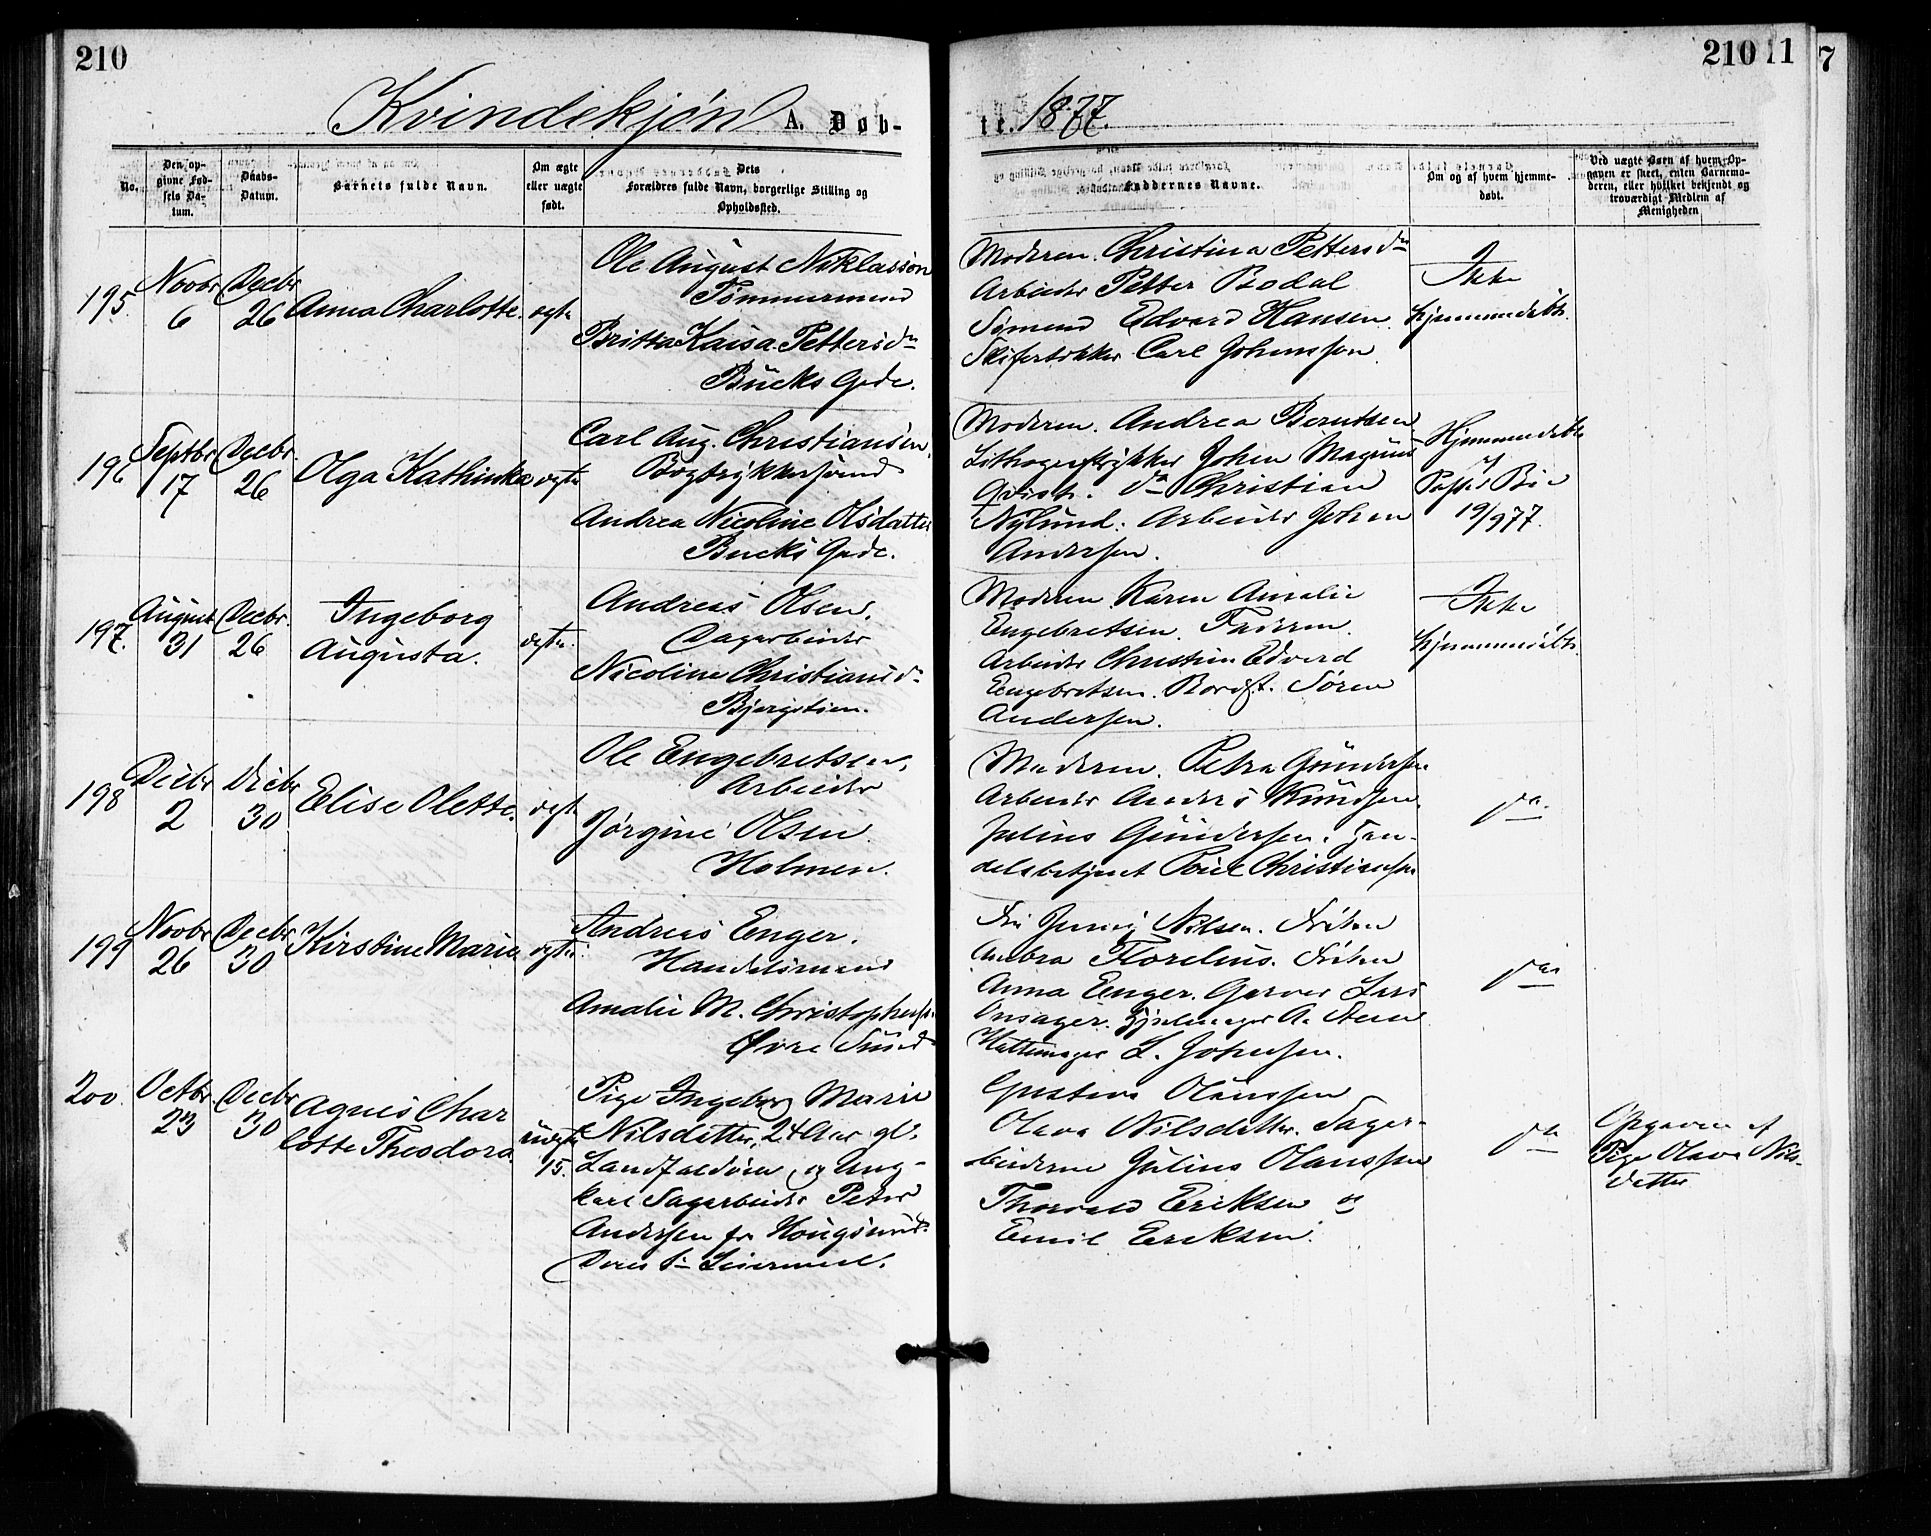 210
210 11 7
Kvindekjøn A. Døb-
te. 1877.
No.
Den op-
givne Fød-
sels Da-
tum.
Daabs-
Datum.
Barnets fulde Navn.
Om ægte
eller uægte
født.
Dets
Forældres fulde Navn, borgerlige Stilling og
Opholdssted.
Faddernes Navne.
Om og af hvem hjemme-
døbt.
Ved uægte Børn af hvem Op-
gaven er skeet, enten Barnemo-
deren, eller hvilket bekjendt og
troværdigt Medlem af
Menigheden
195.
Novbr
6
Decbr
26
Anna Charlotte.
ægte
Ole August Niklasson
Tømmermand
Britta Kaisa Pettersdr
Bücks Gade.
Moderen. Christina Pettersdr
Arbeider Petter Bodal
Sømand Edvard Hansen
Skifertækker Carl Johansson
Ikke
hjemmedøbt.
196
Septbr
17
Decbr.
26
Olga Kathinka
ægte
Carl Aug. Christiansen
Bogtrykkersvend
Andrea Nicoline Olsdatter
Bucks Gade.
Moderen. Andrea Berntsen
Lithograftrykker Johan Magnus
Qvist. do Christian
Nylund. Arbeider Johan
Andersen.
Hjemmedøbt
af
Pastor Bie
19/9 77.
197.
August
31
Decbr.
26
Ingeborg
Augusta.
ægte.
Andreas Olsen,
Dagarbeider
Nicoline Christiansdr
Bjergstien.
Moderen. Karen Amalie
Engebretsen. Faderen.
Arbeider Christian Edvard
Engebretsen. Bordst. Søren
Andersen.
Ikke
hjemmedøbt.
198
Decbr
2
Decbr
30
Elise Olette.
ægte
Ole Engebretsen,
Arbeider
Jørgine Olsen
Holmen.
Moderen. Petra Gundersen
Arbeider Anders Knudsen
Julius Gundersen. Han-
delsbetjent Poul Christiansen
do
199
Novbr
26
Decbr
30
Kirstine Marie
ægte.
Andreas Enger.
Handelsmand
Amalie M. Christophersen
Øvre Sund
Fru Jenny Nilsen. Frøken
Florelius. Frøken
Anna Enger. Garver Lars
Onsager. A. Steen
Hattemager L. Johnsen.
do
200.
Octbr.
23
Decbr
30
Agnes Char
lotte Theodora.
uægte
15.
Pige Ingeborg Marie
Nilsdatter, 24 Aar gl.
Landfalløen og Ung-
karl Sagarbeider Peter
Andersen fra Hougsund.
Deres 1ste Leiermaal.
Gustava Olaussen
Olava Nilsdatter. Sagar-
beiderne Julius Olaussen
Thorvald Eriksen og
Emil Eriksen.
do
Opgaven af
Pige Olava Nils-
datter